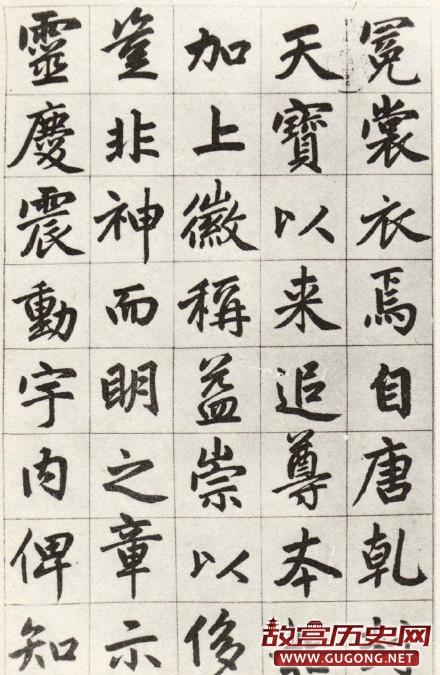 冕裳衣焉自唐乾封
天寶以来追尊本
加上徽稱益崇以侈
豈非神而明之章示
靈慶震動宇内俾知
故宫历史网
WWW.GUGONG.NET